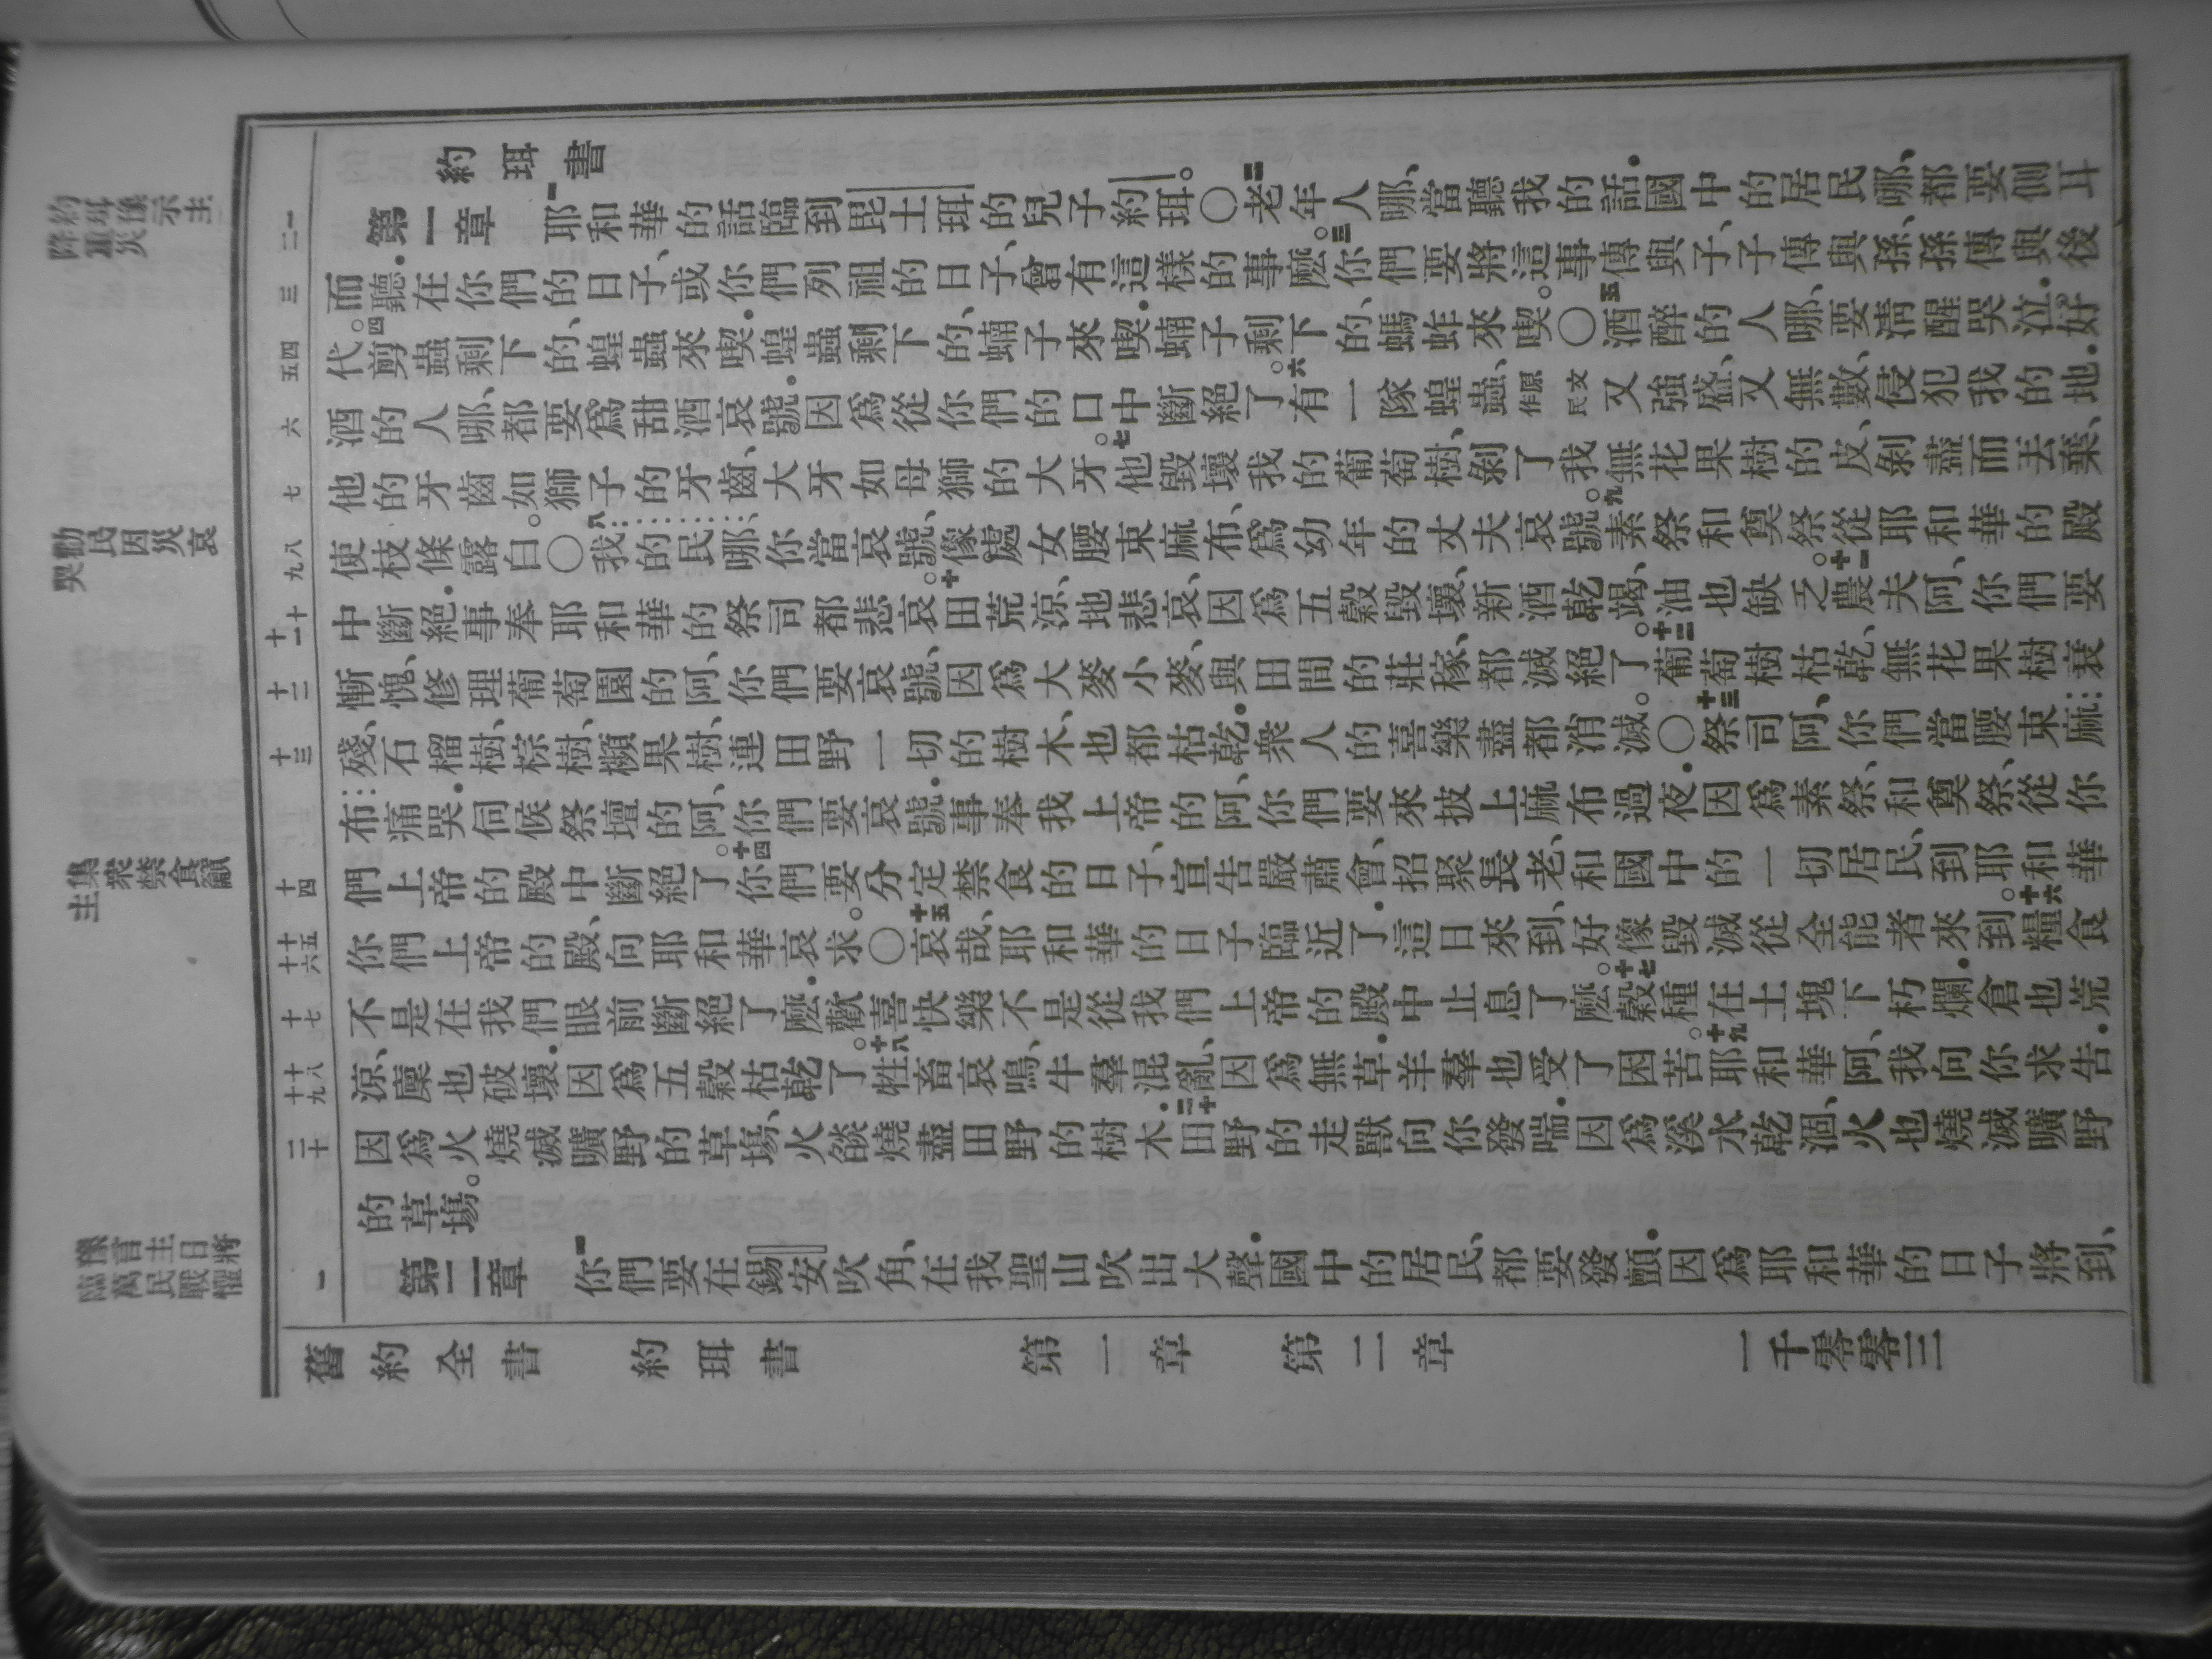 約珥書
第一章 一耶和華的話臨到毘土珥的兒子約珥。〇二老年人哪、當聽我的話．國中的居民哪、都要側耳
而聽．在你們的日子、或你們列祖的日子、曾有這樣的事麽。三你們要將這事傳與子、子傳與孫、孫傳與後
代。四剪蟲剩下的、蝗蟲來喫．蝗蟲剩下的、蝻子來喫．蝻子剩下的、螞蚱來喫。〇五酒醉的人哪、要清醒哭泣．好
酒的人哪、都要爲甜酒哀號．因爲從你們的口中斷絕了。六有一隊蝗蟲、原文作民又強盛、又無數、侵犯我的地．
他的牙齒如獅子的牙齒、大牙如母獅的大牙。七他毀壞我的葡萄樹、剝了我無花果樹的皮、剝盡而丟棄、
使枝條露白。〇八我的民哪、你當哀號、像處女腰束麻布、爲幼年的丈夫哀號。九素祭和奠祭、從耶和華的殿
中斷絕．事奉耶和華的祭司都悲哀。十田荒涼、地悲哀、因爲五穀毀壞、新酒乾竭、油也缺乏。十一農夫阿、你們要
慚愧、修理葡萄園的阿、你們要哀號、因爲大麥小麥、與田間的莊稼、都滅絕了。十二葡萄樹枯乾、無花果樹衰
殘、石榴樹、棕樹、檳果樹、連田野一切的樹木、也都枯乾．衆人的喜樂盡都消滅。〇十三祭司阿、你們當腰束麻
布痛哭．伺候祭壇的阿、你們要哀號．事奉我上帝的阿、你們要來披上麻布過夜．因爲素祭、和奠祭、從你
們上帝的殿中斷絕了。十四你們要分定禁食的日子、宣告嚴肅會、招聚長老、和國中的一切居民、到耶和華
你們上帝的殿、向耶和華哀求。〇十五哀哉、耶和華的日子臨近了．這日來到、好像毀滅從全能者來到。十六糧食
不是在我們眼前斷絕了麽．歡喜快樂不是從我們上帝的殿中止息了麽。十七穀種在土塊下朽爛．倉也荒
涼、廩也破壞．因爲五穀枯乾了。十八牲畜哀鳴、牛羣混亂、因爲無草．羊羣也受了困苦。十九耶和華阿、我向你求告．
因爲火燒滅曠野的草場、火燄燒盡田野的樹木．二十田野的走獸向你發喘．因爲溪水乾涸、火也燒滅曠野
的草場。
第二章 一你們要在錫安吹角、在我聖山吹出大聲．國中的居民、都要發顫．因爲耶和華的日子將到、
舊約全書 約珥書 第一章 第二章 一千零零三
勸民因災哀
哭
集衆禁食籲
主
豫言主日將
臨萬民戰懼
一
二
三
四
五
六
七
八
九
十
十一
十二
十三
十四
十五
十六
十七
十八
十九
二十
一